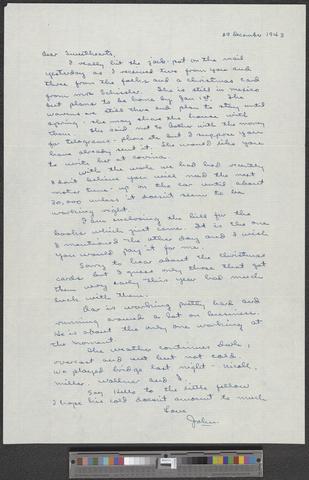 29 December 1943
Dear Sweethearts,
I really hit the jack-pot on the mail
yesterday as I received two from you and
three from the folks and a Christmas card
from Mrs Schissler. She is still in Mexico
but plans to be home by Jan 1st. The
are still there and plan to stay until
spring. She may share the house with
them. She said not to bother with the money
for telegrams - phone etc but I suppose you
have already sent it. She would like you
to write her at Covina.
With the work we had had recently
I don't believe you will need the next
motor tune-up on the car until about
30,000 unless it doesn't seem to be
working right.
I am enclosing the bill for the
books which just came. It is the one
I mentioned the other day and I wish
you would pay it for me.
Sorry to hear about the Christmas
cards but I guess only those that got
them very early this year had much
luck with them.
is working pretty hard and
running around a lot on business.
He is about the only one working at
the moment.
The weather continues dark,
overcast and wet but not cold.
We played bridge last night -
Miller, and I.
Say Hello to the little fellow
I hope his cold doesn't amount to much
Love
John.